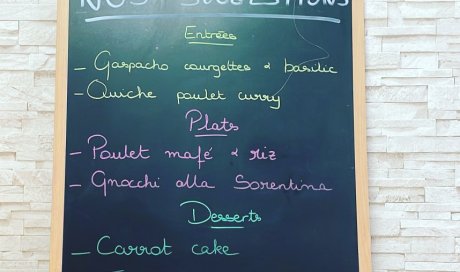 NOS SUGGESTIONS
Entrées
- Gaspacho courgettes & basilic
- Quiche poulet curry
Plats
- Poulet mafé & riz
- Gnocchi alla Sorentina
Desserts
- Carrot cake